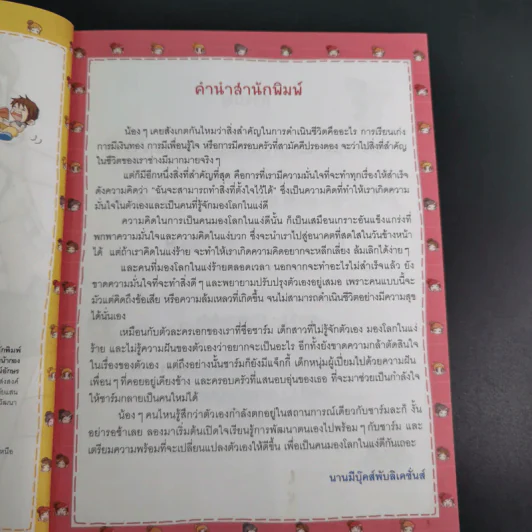 คำนำสำนักพิมพ์
น้อง ๆ เคยสังเกตกันไหมว่าสิ่งสำคัญในการดำเนินชีวิตคืออะไร การเรียนเก่ง
การมีเงินทอง การมีเพื่อนรู้ใจ หรือการมีครอบครัวที่สามัคคีปรองดอง จะว่าไปสิ่งที่สำคัญ
ในชีวิตของเราช่างมีมากมายจริง ๆ
แต่ก็มีอีกหนึ่งสิ่งที่สำคัญที่สุด คือการที่เรามีความมั่นใจที่จะทำทุกเรื่องให้สำเร็จ
ดังความคิดว่า "ฉันจะสามารถทำสิ่งที่ตั้งใจไว้ได้" ซึ่งเป็นความคิดที่ทำให้เราเกิดความ
มั่นใจในตัวเองและเป็นคนที่รู้จักมองโลกในแง่ดี
ความคิดในการเป็นคนมองโลกในแง่ดีนั้น ก็เป็นเสมือนเกราะอันแข็งแกร่งที่
พกพาความมั่นใจและความคิดในแง่บวก ซึ่งจะนำเราไปสู่อนาคตที่สดใสในวันข้างหน้า
ได้ แต่ถ้าเราคิดในแง่ร้าย จะทำให้เราเกิดความคิดอยากจะหลีกเลี่ยง ล้มเลิกได้ง่าย ๆ
และคนที่มองโลกในแง่ร้ายตลอดเวลา นอกจากจะทำอะไรไม่สำเร็จแล้ว ยัง
ขาดความมั่นใจที่จะทำสิ่งที่ดี ๆ และพยายามปรับปรุงตัวเองอยู่เสมอ เพราะคนแบบนี้จะ
มัวแต่คิดถึงข้อเสีย หรือความล้มเหลวที่เกิดขึ้น จนไม่สามารถดำเนินชีวิตอย่างมีความสุข
ได้นั่นเอง
เหมือนกับตัวละครเอกของเราที่ชื่อชาร์ม เด็กสาวที่ไม่รู้จักตัวเอง มองโลกในแง่
ร้าย และไม่รู้ความฝันของตัวเองว่าอยากจะเป็นอะไร อีกทั้งยังขาดความกล้าตัดสินใจ
ในเรื่องของตัวเอง แต่ถึงอย่างนั้นชาร์มก็ยังมีแจ็กกี้ เด็กหนุ่มผู้เปี่ยมไปด้วยความฝัน
เพื่อน ๆ ที่คอยอยู่เคียงข้าง และครอบครัวที่แสนอบอุ่นของเธอ ที่จะมาช่วยเป็นกำลังใจ
ให้ชาร์มกลายเป็นคนใหม่ได้
น้อง ๆ คนไหนรู้สึกว่าตัวเองกำลังตกอยู่ในสถานการณ์เดียวกับชาร์มละก็ งั้น
อย่ารอช้าเลย ลองมาเริ่มต้นเปิดใจเรียนรู้การพัฒนาตนเองไปพร้อม ๆ กับชาร์ม และ
เตรียมความพร้อมที่จะเปลี่ยนแปลงตัวเองให้ดีขึ้น เพื่อเป็นคนมองโลกในแง่ดีกันเถอะ
นานมีบุ๊คส์พับลิเคชั่นส์